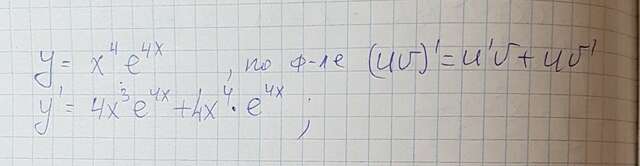 y = x⁴ e⁴ˣ , по ф-ле (uv)' = u'v + uv'
y' = 4x³ e⁴ˣ + 4x⁴ · e⁴ˣ ;